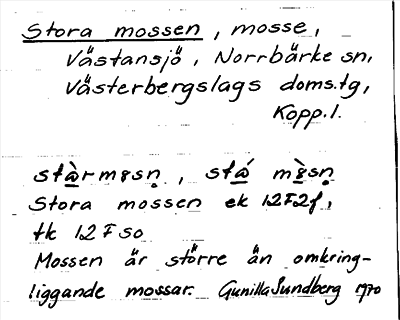 Stora mossen, mosse,
Västansjö, Norrbärke sn,
Västerbergslags doms.tg,
Kopp.l.
Stora mossen ek 12F2f,
tk 12F SO
Mossen är större än omkring-
liggande mossar. Gunilla Sundberg 1970